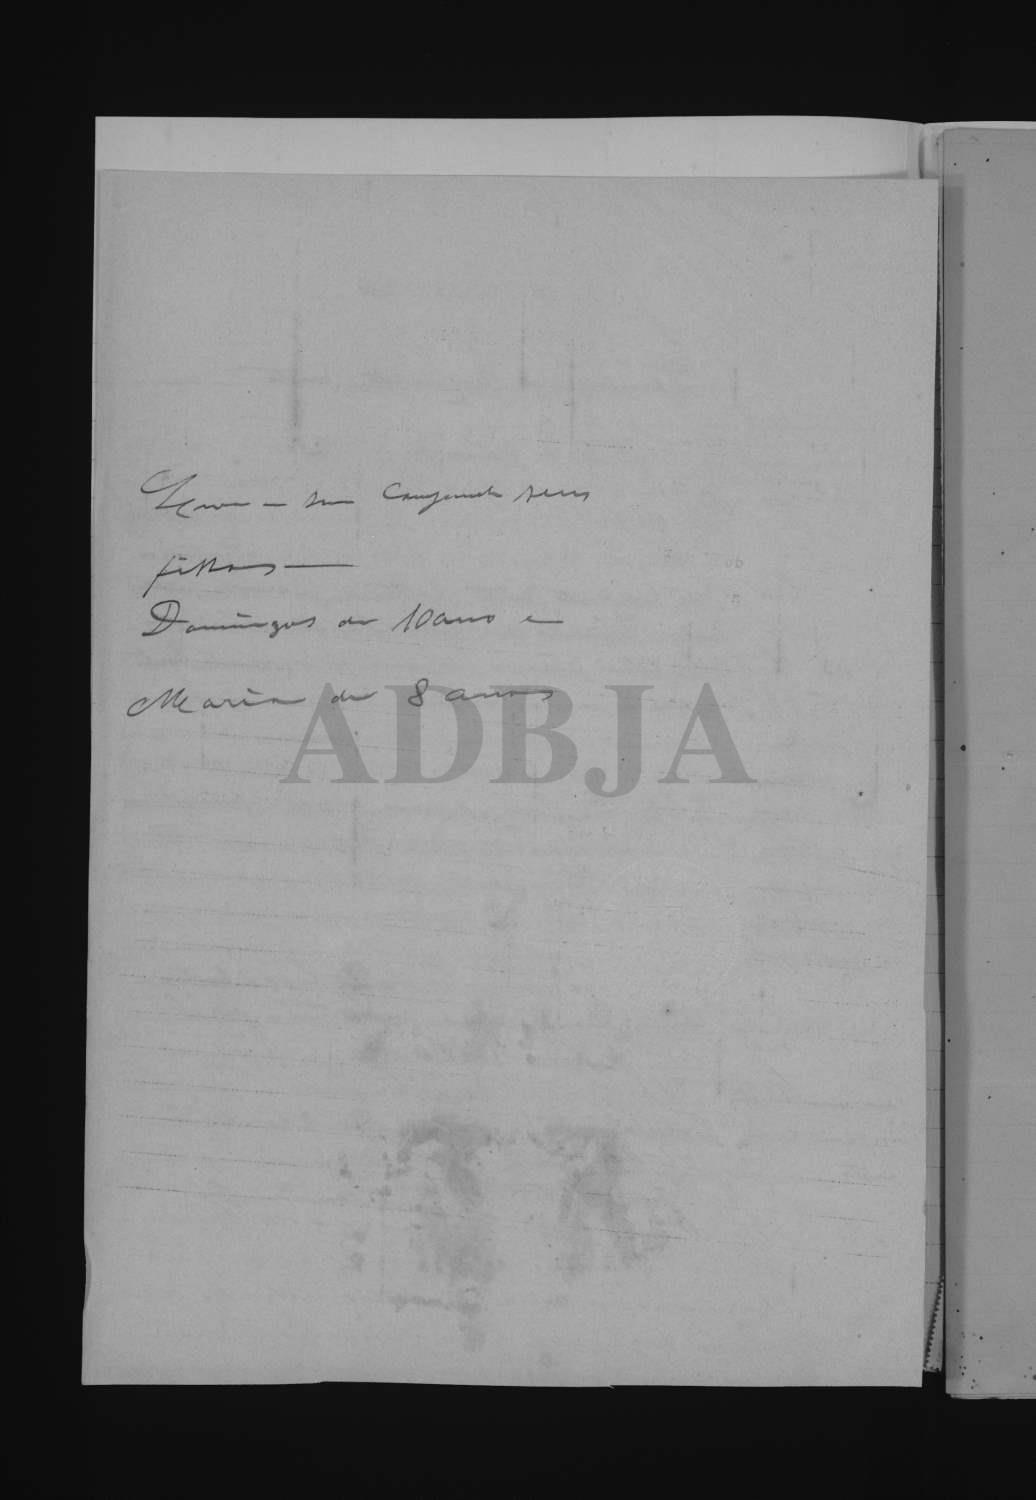 Leva em sua Companhia seus
filhos —
Domingos de 10 anos e
Maria de 8 annos
ADBJA